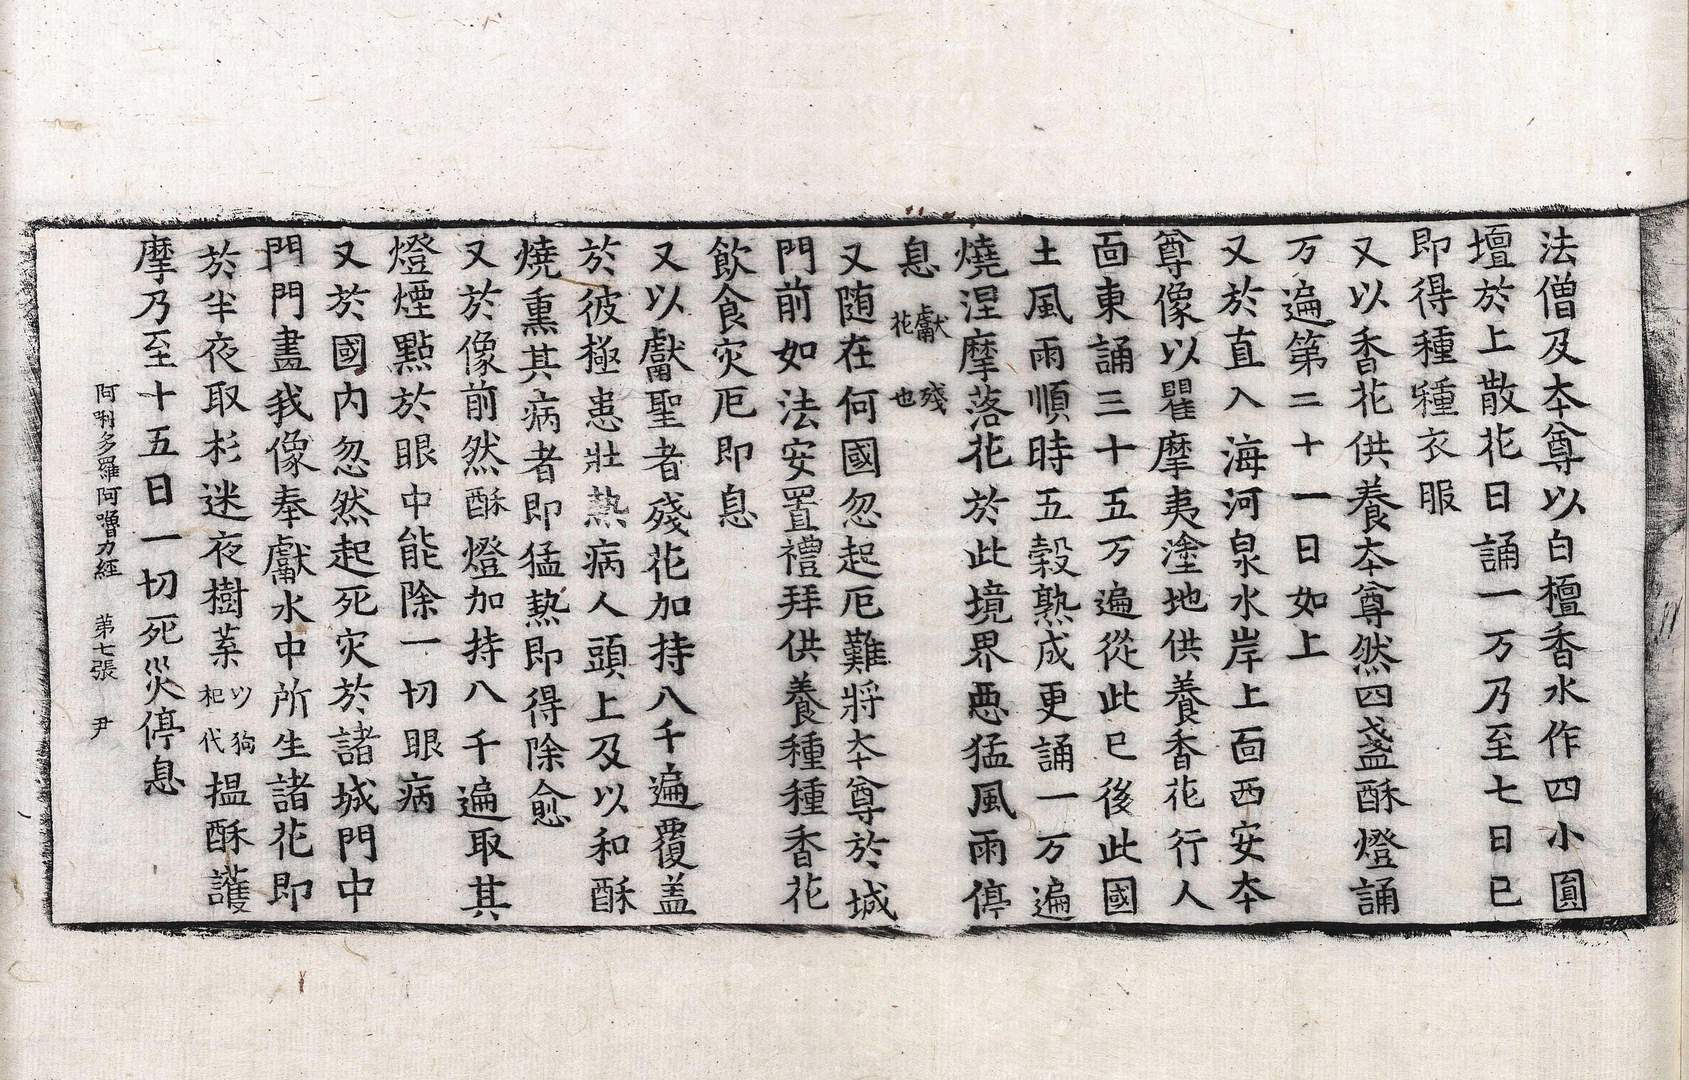 法僧及夲尊以白檀香水作四小圎
壇於上散花日誦一万乃至七日已
即得種種衣服
又以香花供養夲尊然四盞酥燈誦
万遍第二十一日如上
又於直入海河泉水岸上面西安夲
尊像以瞿摩夷塗地供養香花行人
面東誦三十五万遍從此已後此國
土風雨順時五穀熟成更誦一万遍
燒涅摩落花於此境界惡猛風雨停
息獻殘花也
又随在何國忽起厄難將夲尊於城
門前如法安置禮拜供養種種香花
飲食灾厄即息
又以獻聖者殘花加持八千遍覆盖
於彼極患壯熱病人頭上及以和酥
燒熏其病者即猛熱即得除愈
又於像前然酥燈加持八千遍取其
燈煙點於眼中能除一切眼病
又於國内忽然起死灾於諸城門中
門門畫我像奉獻水中所生諸花即
於半夜取杉迷夜樹葉以狗杞代搵酥護
摩乃至十五日一切死災停息
阿唎多羅阿嚕力經 第七張 尹